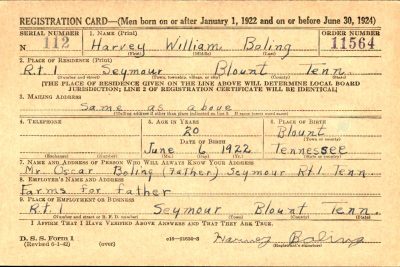 REGISTRATION CARD—(Men born on or after January 1, 1922 and on or before June 30, 1924)
SERIAL NUMBER
1. NAME (Print)
ORDER NUMBER
N 112
Harvey William Boling
11564
(First) (Middle) (Last)
2. PLACE OF RESIDENCE (Print)
Rt. 1 Seymour Blount Tenn.
(Number and street) (Town, township, village, or city) (County) (State)
[THE PLACE OF RESIDENCE GIVEN ON THE LINE ABOVE WILL DETERMINE LOCAL BOARD
JURISDICTION; LINE 2 OF REGISTRATION CERTIFICATE WILL BE IDENTICAL]
3. MAILING ADDRESS
Same as above
(Mailing address if other than place indicated on line 2. If same insert word same)
4. TELEPHONE
5. AGE IN YEARS
6. PLACE OF BIRTH
20
Blount
DATE OF BIRTH
(Town or county)
June 6 1922
Tennessee
(Exchange) (Number) (Mo.) (Day) (Yr.) (State or country)
7. NAME AND ADDRESS OF PERSON WHO WILL ALWAYS KNOW YOUR ADDRESS
Mr. Oscar Boling (Father) Seymour Rt. 1. Tenn.
8. EMPLOYER'S NAME AND ADDRESS
Farms for father
9. PLACE OF EMPLOYMENT OR BUSINESS
Rt. 1 Seymour Blount Tenn.
(Number and street or R. F. D. number) (Town) (County) (State)
I AFFIRM THAT I HAVE VERIFIED ABOVE ANSWERS AND THAT THEY ARE TRUE.
D. S. S. Form 1
(Revised 6-1-42) (over)
Harvey Boling
(Registrant's signature)